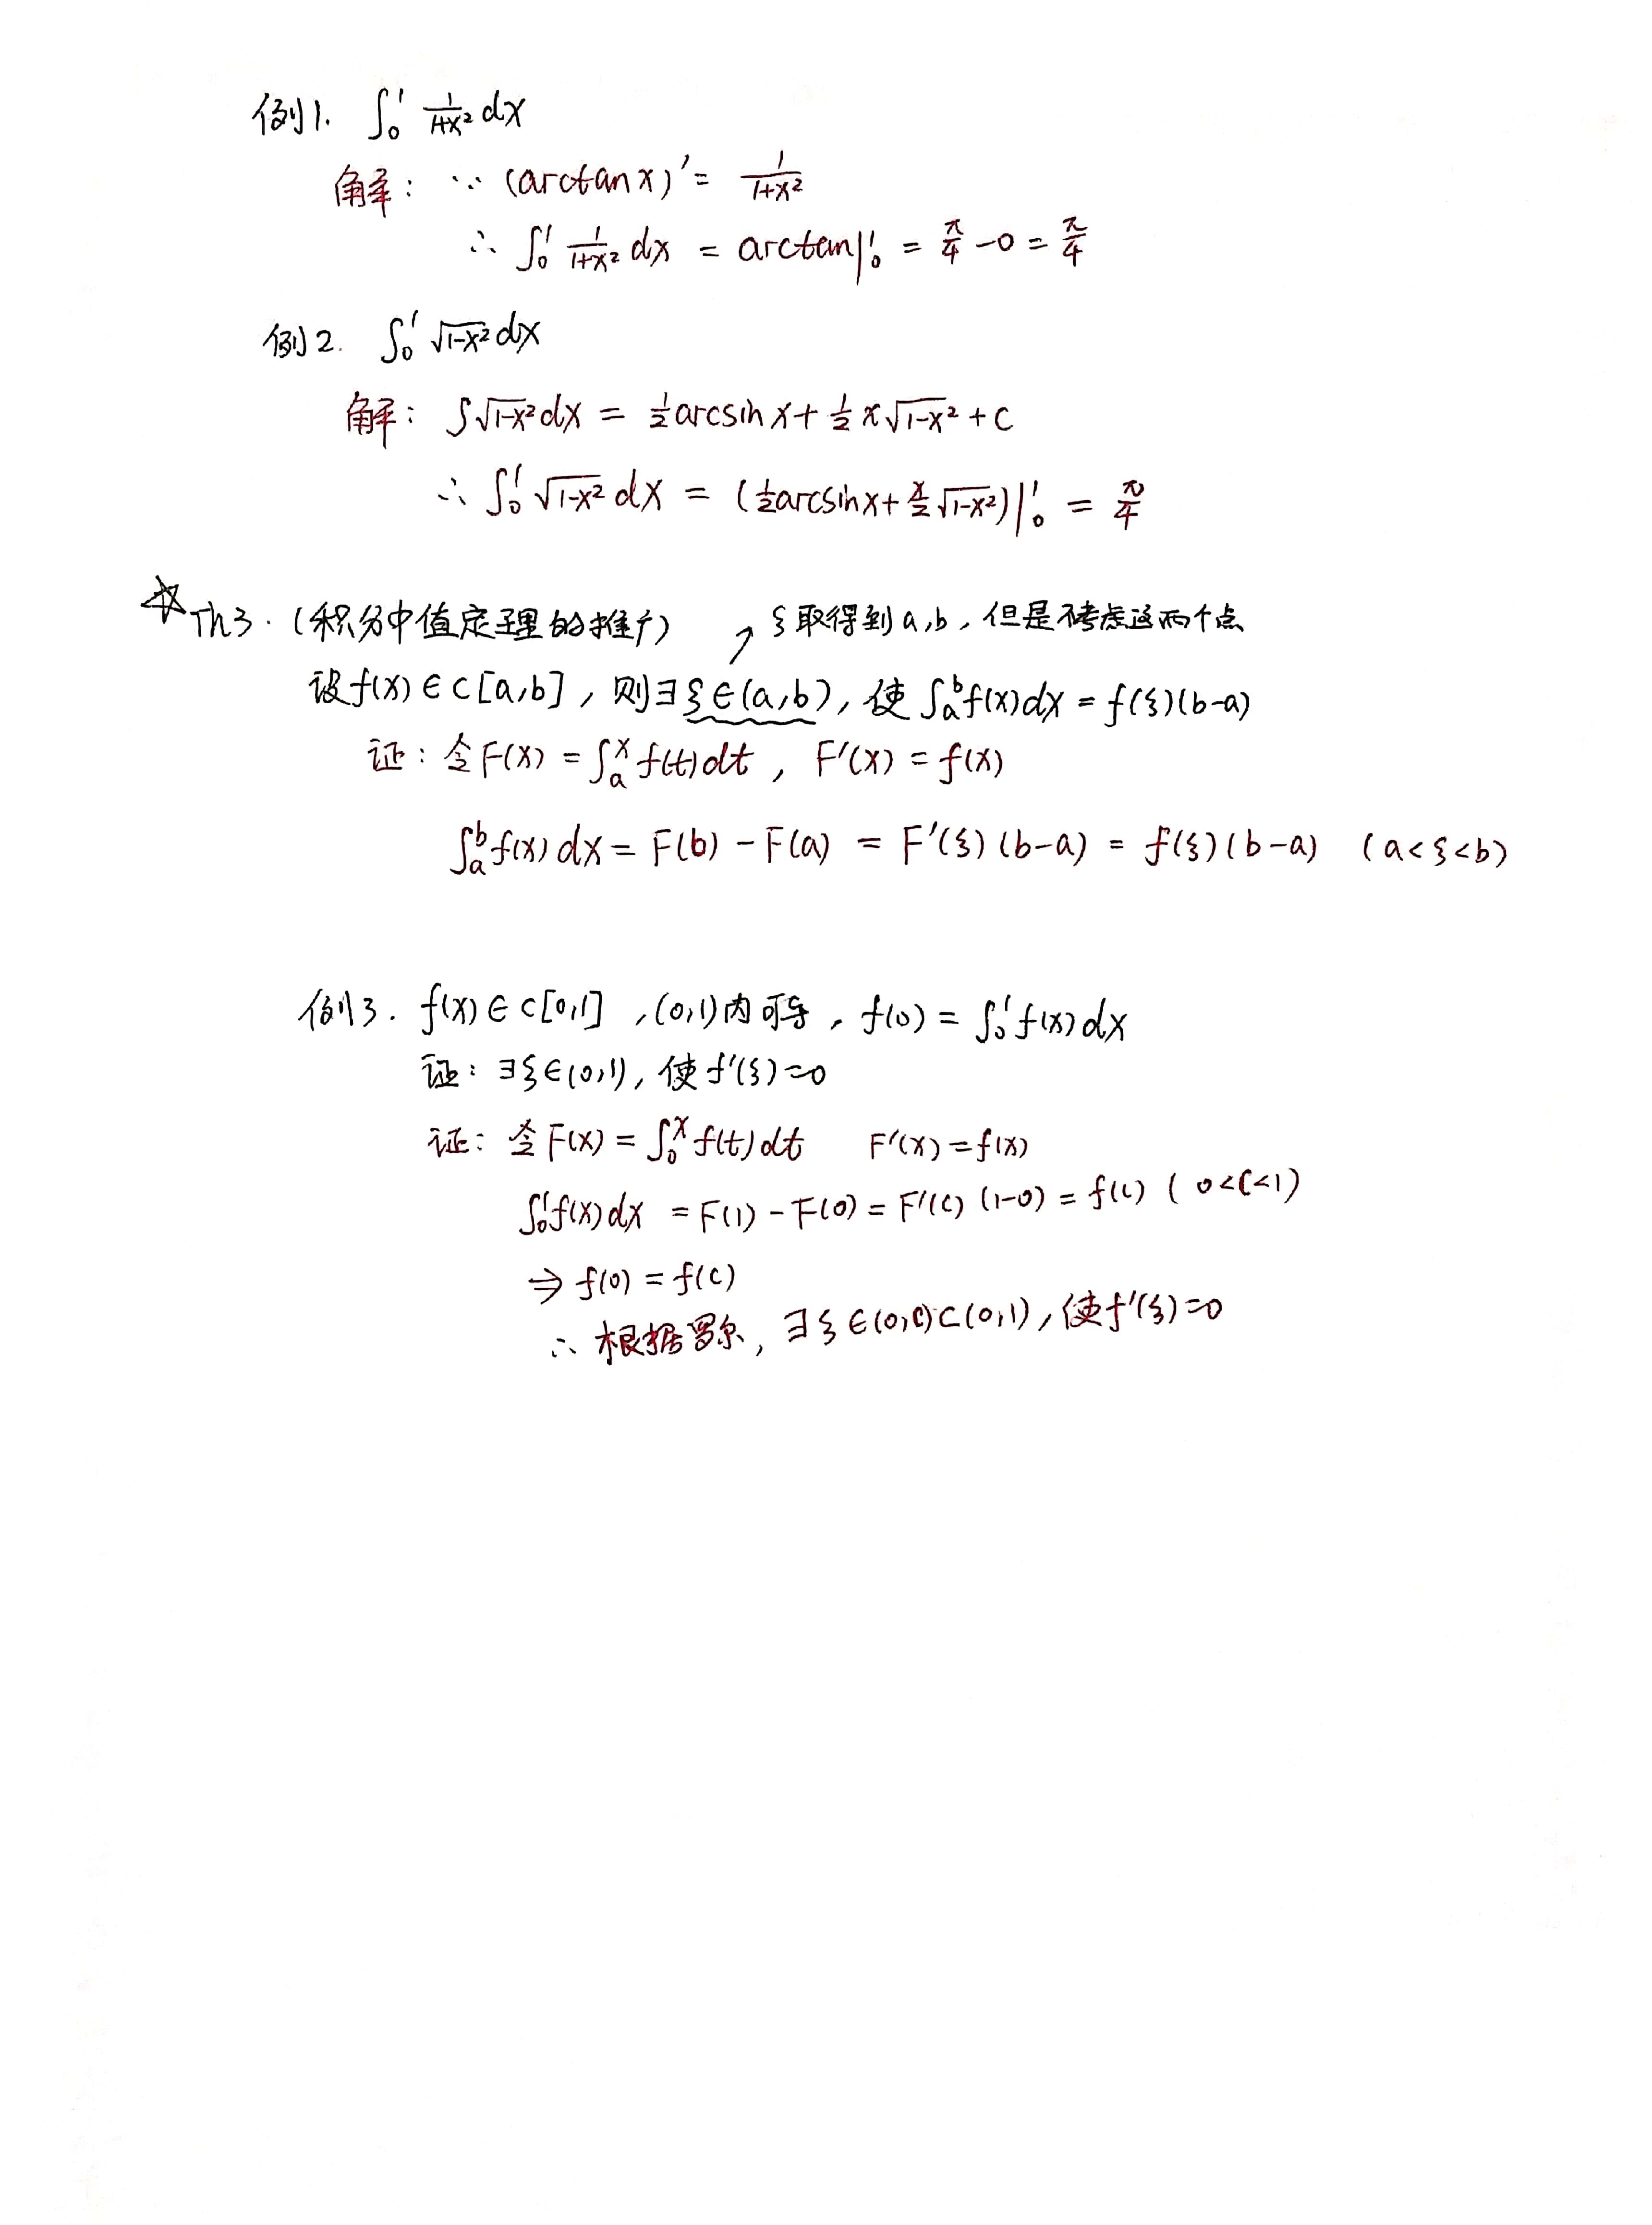 例1. ∫₀¹ 1/(1+x²) dx
解: ∵ (arctanx)' = 1/(1+x²)
∴ ∫₀¹ 1/(1+x²) dx = arctan|₀¹ = π/4 - 0 = π/4
例2. ∫₀¹ √(1-x²) dx
解: ∫√(1-x²) dx = 1/2 arcsinx + 1/2 x√(1-x²) + C
∴ ∫₀¹ √(1-x²) dx = (1/2 arcsinx + x/2 √(1-x²))|₀¹ = π/4
☆Th3. (积分中值定理的推广) ↗ ξ取得到a,b, 但是不考虑这两个点
设f(x)∈C[a,b], 则∃ξ∈(a,b), 使∫ₐᵇf(x)dx = f(ξ)(b-a)
证: 令F(x) = ∫ₐˣ f(t)dt, F'(x) = f(x)
∫ₐᵇ f(x)dx = F(b) - F(a) = F'(ξ)(b-a) = f(ξ)(b-a) (a<ξ<b)
例3. f(x)∈C[0,1], (0,1)内可导, f(0) = ∫₀¹ f(x)dx
证: ∃ξ∈(0,1), 使f'(ξ)=0
证: 令F(x) = ∫₀ˣ f(t)dt F'(x) = f(x)
∫₀¹f(x)dx = F(1) - F(0) = F'(c)(1-0) = f(c) (0<c<1)
⇒ f(0) = f(c)
∴ 根据罗尔, ∃ξ∈(0,c)⊂(0,1), 使f'(ξ)=0